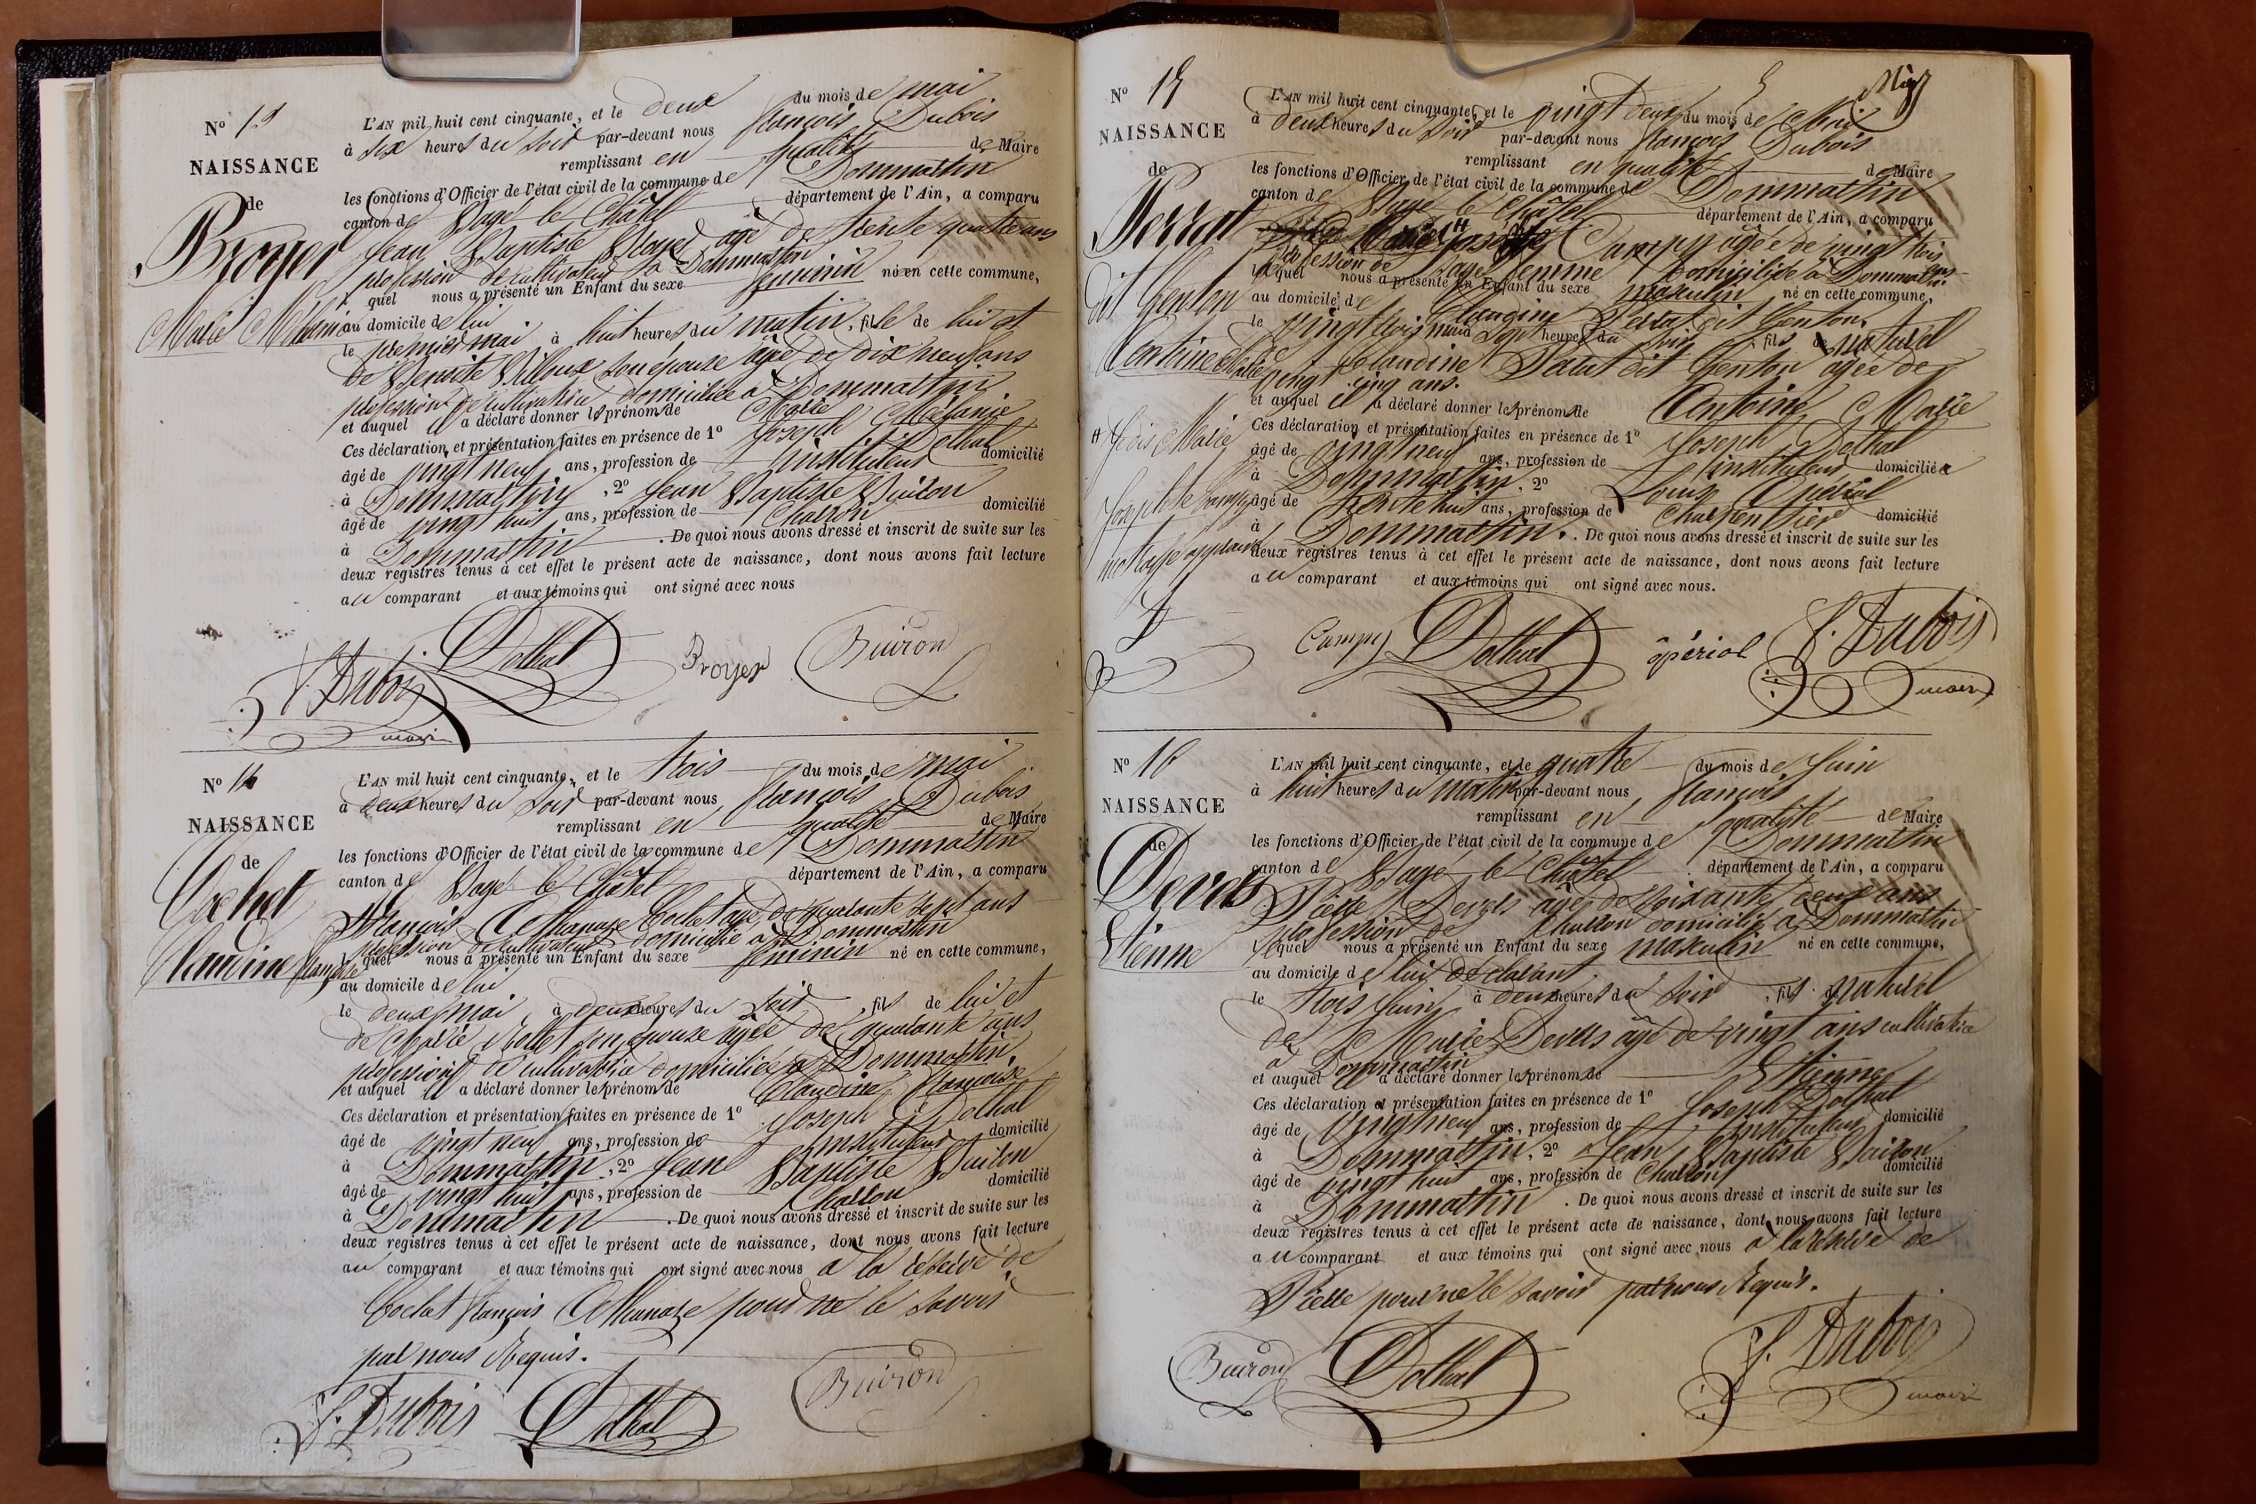 N° 13
NAISSANCE
de
Broyer
Marie Mélanie
L'AN mil huit cent cinquante, et le deux du mois de mai
à six heures du soir par-devant nous François Dubois
remplissant en qualité de Maire
les fonctions d'Officier de l'état civil de la commune de Dommartin
canton de Bagé le Châtel département de l'Ain, a comparu
Jean Baptiste Broyer âgé de trente quatre ans
profession de cultivateur à Dommartin
lequel nous a présenté un Enfant du sexe féminin né en cette commune,
au domicile de lui
le premier mai à huit heures du matin, fille de lui et
de Benoite Villoux son épouse âgée de dix neuf ans
profession de cultivatrice domiciliée à Dommartin
et auquel il a déclaré donner les prénoms de Marie Mélanie
Ces déclaration et présentation faites en présence de 1° Joseph Dothal
âgé de vingt neuf ans, profession de instituteur domicilié
à Dommartin, 2° Jean Baptiste Buiron
âgé de vingt huit ans, profession de Charron domicilié
à Dommartin. De quoi nous avons dressé et inscrit de suite sur les
deux registres tenus à cet effet le présent acte de naissance, dont nous avons fait lecture
au comparant et aux témoins qui ont signé avec nous
F. Dubois Dothal Broyer Buiron
maire
N° 14
NAISSANCE
de
Cochet
Claudine Françoise
L'AN mil huit cent cinquante, et le trois du mois de mai
à deux heures du soir par-devant nous François Dubois
remplissant en qualité de Maire
les fonctions d'Officier de l'état civil de la commune de Dommartin
canton de Bagé le Châtel département de l'Ain, a comparu
François Athanaze Cochet âgé de quarante sept ans
profession de cultivateur domicilié à Dommartin
lequel nous a présenté un Enfant du sexe féminin né en cette commune,
au domicile de lui
le deux mai, à deux heures du soir, fils de lui et
de Marie Rollet son épouse âgée de quarante ans
profession de cultivatrice domiciliée à Dommartin
et auquel il a déclaré donner les prénoms de Claudine Françoise
Ces déclaration et présentation faites en présence de 1° Joseph Dothal
âgé de vingt neuf ans, profession de instituteur domicilié
à Dommartin, 2° Jean Baptiste Buiron
âgé de vingt huit ans, profession de Charron domicilié
à Dommartin. De quoi nous avons dressé et inscrit de suite sur les
deux registres tenus à cet effet le présent acte de naissance, dont nous avons fait lecture
au comparant et aux témoins qui ont signé avec nous à la réserve de
Cochet François Athanaze pour ne le savoir
par nous Requis.
F. Dubois Dothal Buiron
N° 15
NAISSANCE
de
Ferrat
dit Genton
Antoine Marie
L'AN mil huit cent cinquante, et le vingt deux du mois de Mai
à deux heures du soir par-devant nous François Dubois
remplissant en qualité de Maire
les fonctions d'Officier de l'état civil de la commune de Dommartin
canton de Bagé le Châtel département de l'Ain, a comparu
Campy âgée de vingt trois ans
profession de Sage femme domiciliée à Dommartin
lequel nous a présenté un Enfant du sexe masculin né en cette commune,
au domicile de Claudine Ferrat dit Genton
le vingt mai à sept heures du soir, fils naturel
de Claudine Ferrat dit Genton âgée de
vingt cinq ans.
et auquel il a déclaré donner les prénoms de Antoine Marie
Ces déclaration et présentation faites en présence de 1° Joseph Dothal
âgé de vingt neuf ans, profession de instituteur domicilié
à Dommartin, 2° Louis Opérial
âgé de trente huit ans, profession de Charpentier domicilié
à Dommartin. De quoi nous avons dressé et inscrit de suite sur les
deux registres tenus à cet effet le présent acte de naissance, dont nous avons fait lecture
au comparant et aux témoins qui ont signé avec nous.
Je dis Marie
Josephte Campy
mot rayé approuvé
D
Campy Dothal Opérial F. Dubois
maire
N° 16
NAISSANCE
de
Devers
Etienne
L'AN mil huit cent cinquante, et le quatre du mois de Juin
à huit heures du matin par-devant nous François
remplissant en qualité de Maire
les fonctions d'Officier de l'état civil de la commune de Dommartin
canton de Bagé le Châtel département de l'Ain, a comparu
Pierre Devers âgé de soixante deux ans
profession de Charron domicilié à Dommartin
lequel nous a présenté un Enfant du sexe masculin né en cette commune,
au domicile de lui déclarant
le trois Juin à deux heures du soir, fils naturel
de Marie Devers âgé de vingt ans cultivatrice
à Dommartin
et auquel il a déclaré donner le prénom de Etienne
Ces déclaration et présentation faites en présence de 1° Joseph Dothal
âgé de vingt neuf ans, profession de instituteur domicilié
à Dommartin, 2° Jean Baptiste Buiron
âgé de vingt huit ans, profession de Charron domicilié
à Dommartin. De quoi nous avons dressé et inscrit de suite sur les
deux registres tenus à cet effet le présent acte de naissance, dont nous avons fait lecture
au comparant et aux témoins qui ont signé avec nous à la réserve de
Pierre pour ne le savoir par nous Requis.
Buiron Dothal F. Dubois
maire